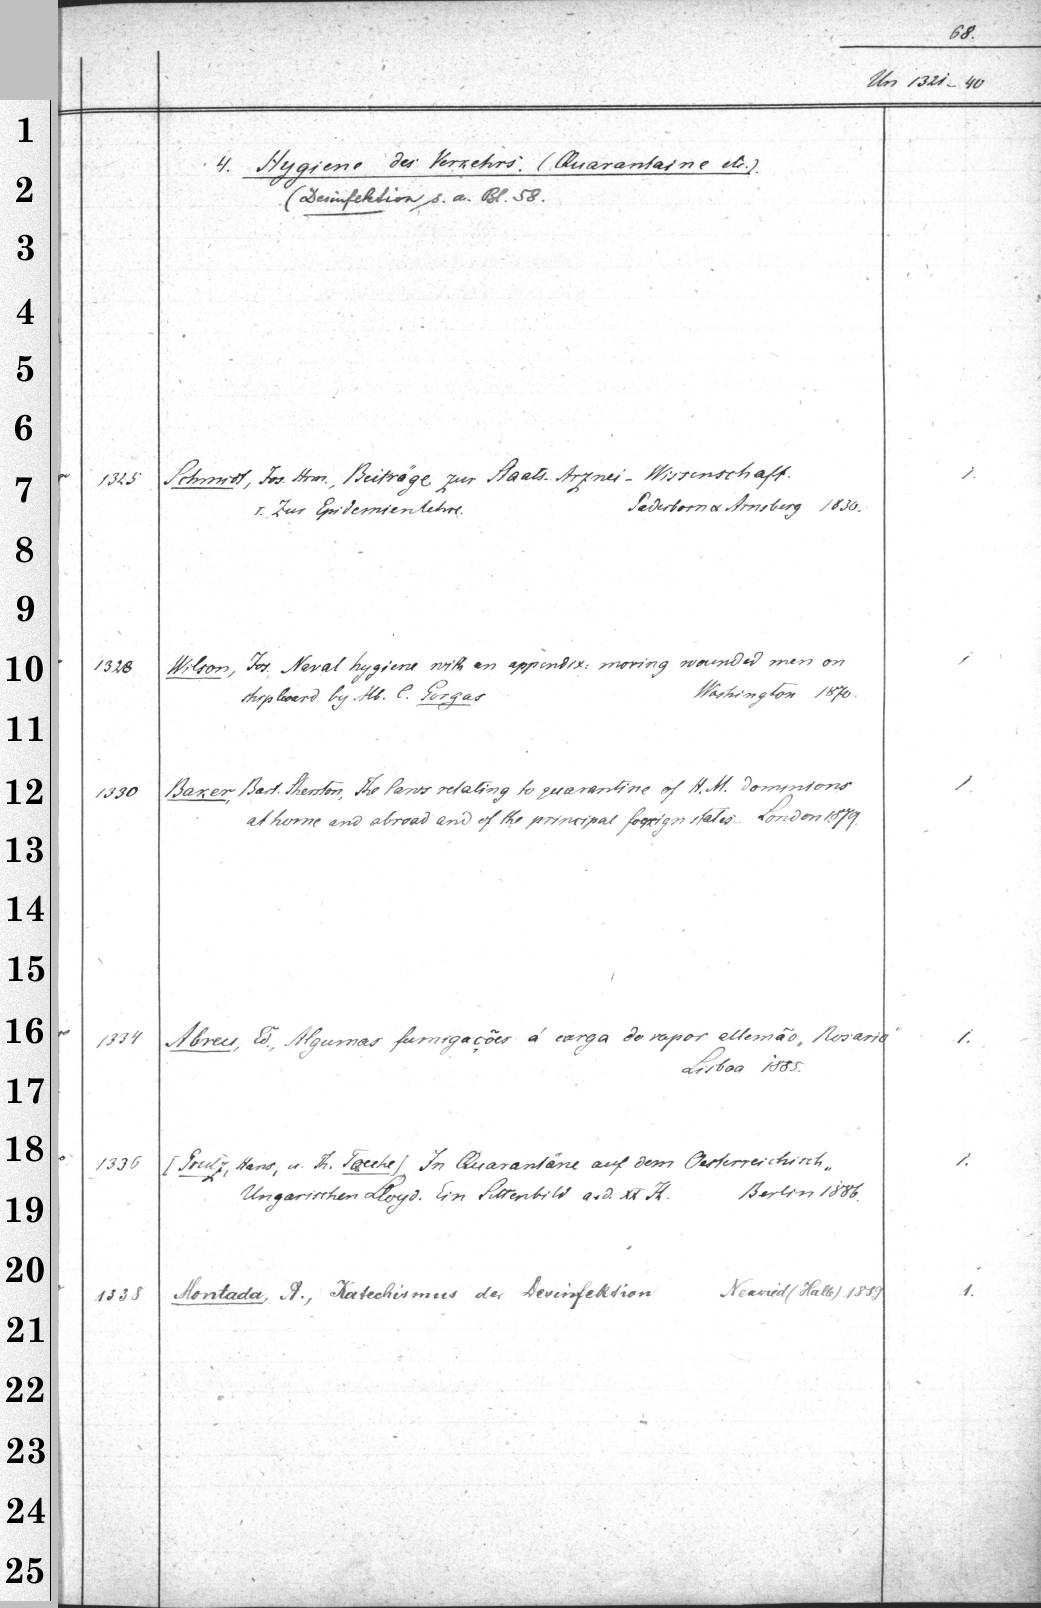 68.
Un 1321-40
1
2
3
4
5
6
7
8
9
10
11
12
13
14
15
16
17
18
19
20
21
22
23
24
25
4. Hygiene des Verkehrs. (Quarantaine etc.)
(Desinfektion s. a. Bl. 58.
1325 Schmidt, Jos. Hrm., Beiträge zur Staats-Arznei-Wissenschaft. 1.
1. Zur Epidemienlehre. Paderborn & Arnsberg 1830.
1328 Wilson, Jos. Naval hygiene with an appendix: moving wounded men on 1
shipboard by Alb. C. Gorgas Washington 1870.
1330 Baker, Sherston, The laws relating to quarantine of H. M. dominions 1.
at home and abroad and of the principal foreign states London 1879.
1334 Abreu, Ed., Algumas fumigações á carga do vapor allemão „Rosario" 1.
Lisboa 1885.
1336 [ Hans, u. Th. Toeche] In Quarantäne auf dem Oesterreichisch„ 1.
Ungarischen Lloyd. Ein Sittenbild a. d. XX Jh. Berlin 1886.
1338 Montada, A., Katechismus der Desinfektion Neuwied 1889 1.